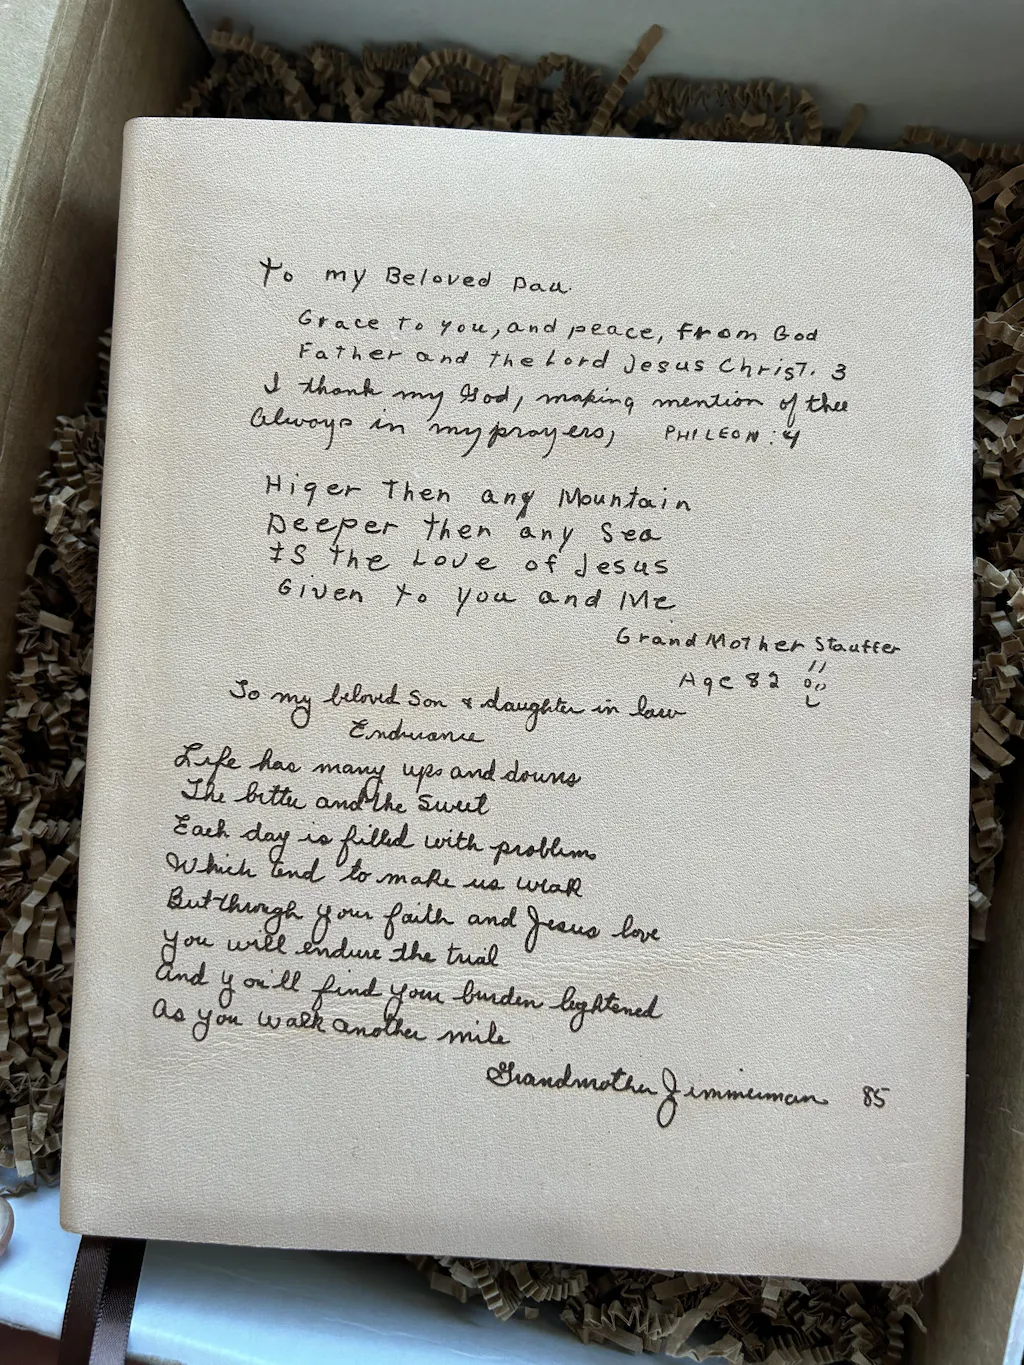 To my Beloved Dau.
Grace to you, and peace, from God
Father and the Lord Jesus Christ. 3
I thank my God, making mention of thee
Always in my prayers, PHILEON : 4
Higer Then any Mountain
Deeper then any Sea
IS the Love of Jesus
Given to you and Me
GrandMother Stauffer
Age 82
To my beloved Son & daughter in law
Endurance
Life has many ups and downs
The bitter and the sweet
Each day is filled with problems
Which tend to make us weak
But through your faith and Jesus love
you will endure the trial
And you'll find your burden lightened
As you walk another mile
Grandmother Zimmerman 85